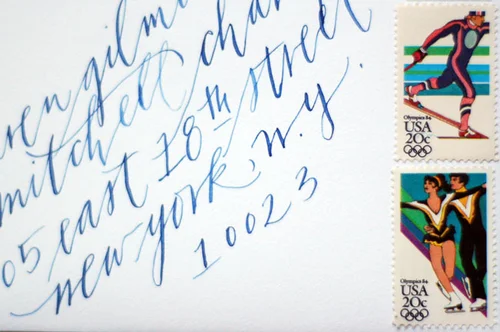 ren gilm
mitchell chan
05 east 18th street
new york, n.y.
10023
Olympics 84
USA
20c
Olympics 84
USA
20c